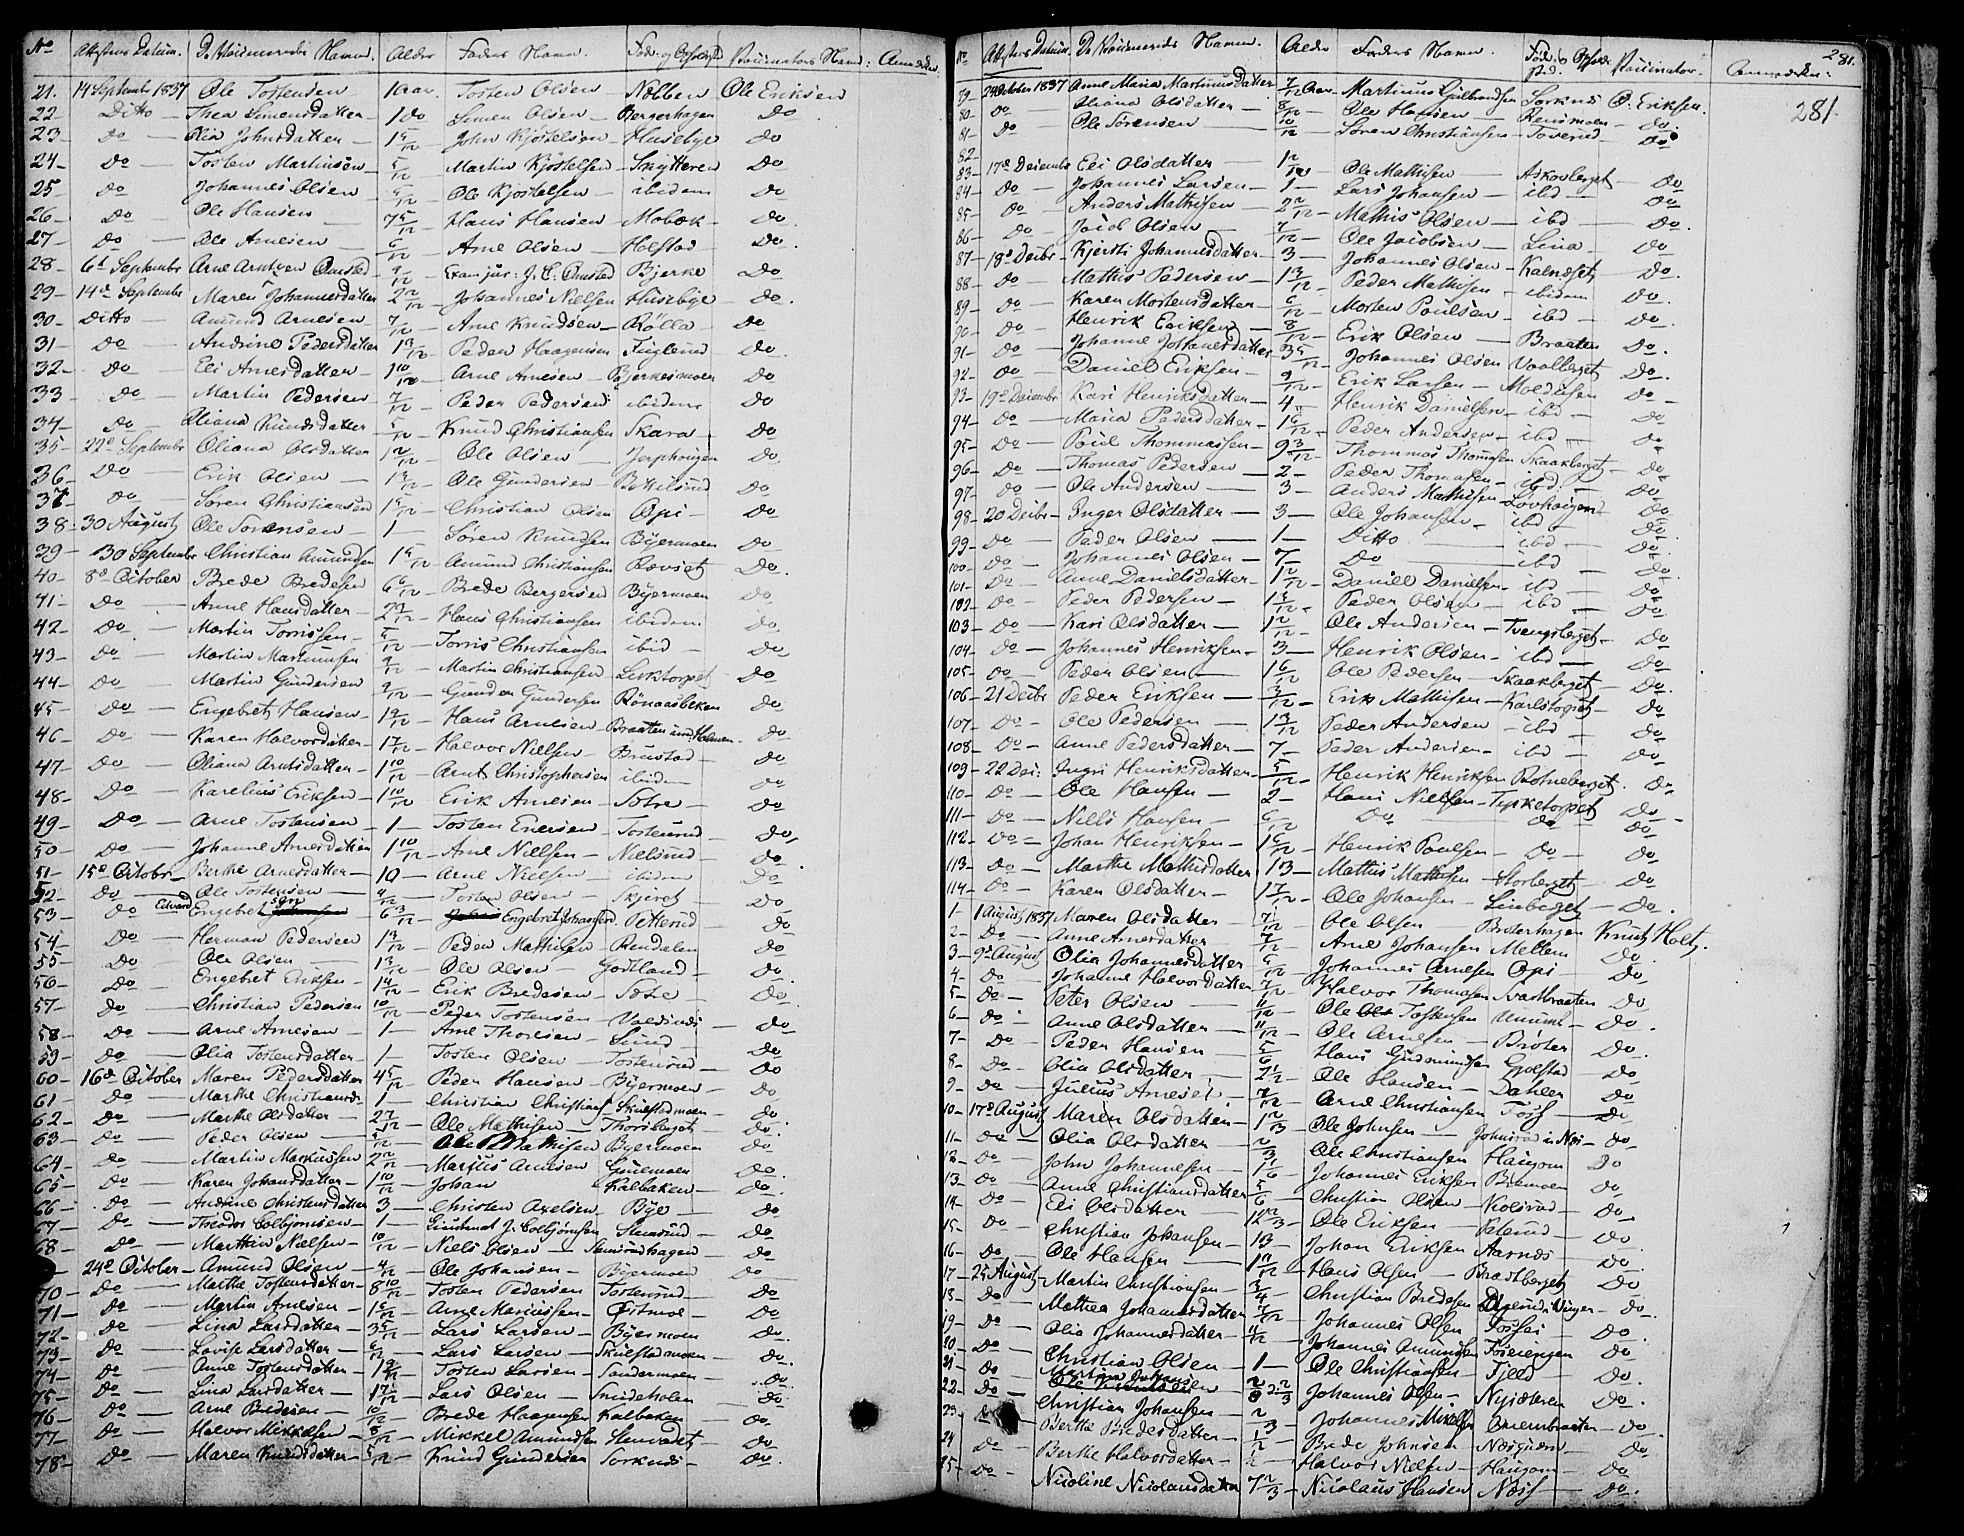 No Attestens Datum. De Vaccineredes Navne. Alder Faders Navn. Føde- og Opholdsst. Vaccinators Navn: Anmærkn:
21. 14 September 1837 Ole Tostensen 1 aar. Tosten Olsen Nebben Ole Eriksen
22 Ditto Thea Simensdatter 1 Do Simen Olsen Bergerhagen Do
23 Do Olia Johnsdatter 1 5/12 John Kjøstelsen Husebye Do
24 Do Tosten Martinsen 5/12 Martin Kjøstelsen Skytteren Do
25 Do Johannes Olsen 5/12 Ole Kjøstelsen ibidem Do
26 Do Ole Hansen 7 5/12 Hans Hansen Mobæk Do
27 Do Ole Arnesen 6/12 Arne Olsen Holstad Do
28 6te September Arne Arntzen Omsted 9/12 Exam jur: J. C. Omsted Bjerke Do
29 14de September Maren Johannesdatter 2 2/12 Johannes Nielsen Husebye Do
30 Ditto Amund Arnesen 7/12 Arne Knudsen Rølla Do
31 Do Andrine Pedersdatter 1 3/12 Peder Haagensen Fuglerud Do
32 Do Eli Arnesdatter 1 10/12 Arne Arnesen Bjerkesmoen Do
33 Do Martin Pedersen 7/12 Peder Pedersen ibidem Do
34 Do Oliana Knudsdatter 5/12 Knud Christiansen Skara Do
35 22de September Oliana Olsdatter 1 2/12 Ole Olsen Jerphougen Do
36 Do Erik Olsen 1 3/12 Ole Gundersen Bottelsrud Do
37 Do Søren Christiansen 1 5/12 Christian Olsen Opi Do
38 30 August Ole Sørensen 1 Søren Knudsen Byermoen Do
39 30 September Christian Amundsen 1 5/12 Amund Christiansen Rævset Do
40 8de October Brede Bredesen 6 6/12 Brede Bergersen Byermoen Do
41 Do Anne Hansdatter 2 9/12 Hans Christiansen ibidem Do
42 Do Martin Torrissen 5/12 Torris Christiansen ibid Do
43 Do Martin Martinusen 9/12 Martin Christiansen Lirktorpet Do
44 Do Martin Gundersen 9/12 Gunder Gundersen Rønaasbeken Do
45 Do Engebret Hansen 1 9/12 Hans Arnesen Braaten und: Holmen Do
46 Do Karen Halvordatter 1 7/12 Halvor Nielsen Brustad Do
47 Do Oliana Arntsdatter 1 10/12 Arnt Christophersen ibid Do
48 Do Karelius Eriksen 1 10/12 Erik Arnesen Sotre Do
49 Do Arne Tostensen 1 Tosten Enersen Tostenrud Do
50 Do Johanne Arnesdatter 1 10/12 Arne Nielsen Nielsrud Do
51 15de October Berthe Arnesdatter 10 Arne Nielsen ibidem Do
52 Do Ole Tostensen 4/12 Tosten Olsen Skjeret Do
53 Do Edvard Engebretsen 6 3/12 Engebret Johansen Petterud Do
54 Do Herman Pedersen 1 3/12 Peder Mathisen Rendalen Do
55 Do Ole Olsen 1 3/12 Ole Olsen Godtland Do
56 Do Engebret Eriksen 1 4/12 Erik Bredesen Sotre Do
57 Do Christian Pedersen 10/12 Peder Tostensen Do
58 Do Arne Arnesen 1 Arne Thoresen Lund Do
59 Do Olia Tostensdatter 1 Tosten Olsen Tostenrud Do
60 16de October Maren Pedersdatter 4 5/12 Peder Hansen Byermoen Do
61 Do Marthe Christiansd. 1 Christian Christians Skulstadmoen Do
62 Do Marthe Olsdatter 2 7/12 Ole Mathisen Thorsberget Do
63 Do Peder Olsen 5/12 Ole Mathisen Byermoen Do
64 Do Martin Markussen 2 2/12 Marius Arnesen Do
65 Do Karen Johansdatter 1 10/12 Johan Kalbakken Do
66 Do Andrine Christensdatter 3 Christen Axelsen Bye Do
67 Do Theodor Colbjørnsen 1 Lieutnat J. Colbjørnsen Stensrud Do
68 Do Marthin Nielsen 10/12 Niels Olsen Stensrudhagen Do
24de October Amund Olsen 4/12 Ole Johansen Byermoen Do
70 Do Marthe Tostensdatter 8 10/12 Tosten Pedersen Tostenrud Do
71 Do Martin Arnesen 1 6/12 Arne Mariussen Østmoe Do
72 Do Lina Larsdatter 3 5/12 Lars Larsen Byermoen Do
73 Do Lovise Larsdatter 6/12 Lars Larsen Skulstadmoen Do
74 Do Anne Tostensdatter 1 9/12 Tosten Larsen Sandermoen Do
75 Do Lina Larsdatter 1 7/12 Lars Olsen Do
76 Do Arne Bredesen 10/12 Brede Haagensen Kalbakken Do
77 Do Halvor Mikkelsen 8/12 Mikkel Amundsen Do
78 Do Maren Knudsdatter 5/12 Knud Gundersen Sorknes Do
281.
281
No Attestens Datum De Vaccineredes Navne. Alder Faders Navn. Føde- og Opholds-sted. Vaccinator. Anmærkn:
79 24 October 1837 Anne Maria Martinusdatter 7/12 aar Martinus Gulbrandsen Sorknes O. Eriksen.
80 Do Oliana Olsdatter 8/12 Ole Hansen Rensmoen Do
81 Do Ole Sørensen 10/12 Søren Christiansen Toverud Do
82
83 17de December Eli Olsdatter 1 2/12 Ole Mathisen Askovberget Do
84 Do Johannes Larsen 1 Lars Johansen ibd Do
85 Do Anders Mathisen 2 2/12 Mathis Olsen ibd Do
86 Do Jacob Olsen 7/12 Ole Jacobsen Lina Do
87 18de Decbr Kjersti Johannesdatter 3 Johannes Olsen Kalneset Do
88 Do Mathis Pedersen 1 3/12 Peder Mathisen ibidem Do
89 Do Karen Mortensdatter 6/12 Morten Poulsen ibd Do
90 Do Henrik Eriksen 8/12 Erik Olsen Braaten Do
91 Do Johanne Johanesdatter 3 5/12 Johannes Olsen Voolberget Do
92 Do Daniel Eriksen 9/12 Erik Larsen Moldusen Do
93 19de December Kari Henriksdatter 4 Henrik Danielsen ibd Do
94 Do Maria Pedersdatter 1 6/12 Peder Andersen ibd Do
95 Do Poul Thommassen 9 3/12 Thommas Thomasen Skaakberget Do
96 Do Thomas Pedersen 2 Peder Thomasen ibd Do
97 Do Ole Andersen 3 Anders Mathisen Lovhaugen Do
98 20 Decbr Inger Olsdatter 3 Ole Johansen ibd Do
99 Do Peder Olsen 1 Ditto ibd Do
100 Do Johannes Olsen 7 Do ibd Do
101 Do Anne Danielsdatter 1 2/12 Daniel Danielsen ibd Do
102 Do Peder Pedersen 1 3/12 Peder Olsen ibd Do
103 Do Kari Olsdatter 1 2/12 Ole Andersen Tvengsberget Do
104 Do Johannes Henriksen 3 Henrik Olsen ibd Do
105 Do Peder Olsen 1 6/12 Ole Pedersen Skaakberget Do
106 21 Decbr Peder Eriksen 3/12 Erik Mathisen Karlstorpet Do
107 Do Ole Pedersen 1 3/12 Peder Andersen ibd Do
108 Do Anne Pedersdatter 7 Peder Andersen ibd Do
109 22 Dec: Ingri Henriksdatter 5/12 Henrik Henriksen Rotneberget Do
110 Do Ole Hansen 2 Hans Nielsen Tysketorpet Do
111 Do Niels Hansen 6/12 Do Do Do
112 Do Johan Henriksen 1 6/12 Henrik Poulsen Do Do
113 Do Marthe Mathisdatter 13 Mathis Mathisen Storberget Do
114 Do Karen Olsdatter 1 7/12 Ole Johansen Linberget Do
1 1 August 1837 Maren Olsdatter 7/12 Ole Olsen Broterhagen Knut Holt.
2 Do Anne Arnesdatter 7/12 Arne Johansen Mellem Do
3 9de August Olia Johannesdatter 6/12 Johannes Arnesen Opi Do
4 Do Johanne Halvordatter 7/12 Halvor Thomasen Svartbraaten Do
5 Do Peter Olsen 11/12 Ole Tostensen Do
6 Do Anne Olsdatter 11/12 Ole Arnesen Broter Do
7 Do Peder Hansen 5/6 Hans Gudmundsen Grolstad Do
8 Do Olia Olsdatter 2 1/2 Ole Hansen Dahlen Do
9 Do Julius Arnesen 7/12 Arne Christiansen Foss Do
10 17de August Maren Olsdatter 1 2/3 Ole Johnsen Johnsrud i Næs Do
11 Do Olia Olsdatter 2/3 Ole Christiansen Haugom Do
12 Do John Johannesen 1 1/6 Johannes Eriksen Do
13 Do Anne Christiansdatter 5/6 Christian Olsen Kolsrud Do
14 Do Eli Olsdatter 12 2/3 Ole Eriksen Do
15 Do Christian Johansen 13 Johan Eriksen Aarnæs Do
16 Do Ole Hansen 1 1/12 Hans Olsen Bradtberget Do
17 25 August Martin Christiansen 3/4 Christian Bredesen i Vinger Do
18 Do Mathea Johannesdatter 7/12 Johannes Olsen Fosser Do
19 Do Olia Johannesdatter 11/12 Johannes Amundsen Foseiengen Do
20 Do Christian Olsen 1 Ole Christiansen Fjeld Do
21 Do Martinus Johansen 2 2/3 Johannes Olsen Nysæteren Do
22 Do Christian Johansen 2/3 Johannes Mikelsen Do
23 Berthe Bredesdatter 1/2 Brede Johnsen Do
24 Do Berthe Halvorsdatter 1/2 Halvor Nielsen Haugom Do
25 Do Nicoline Nicolausdatter 7 2/3 Nicolaus Hansen Næss Do